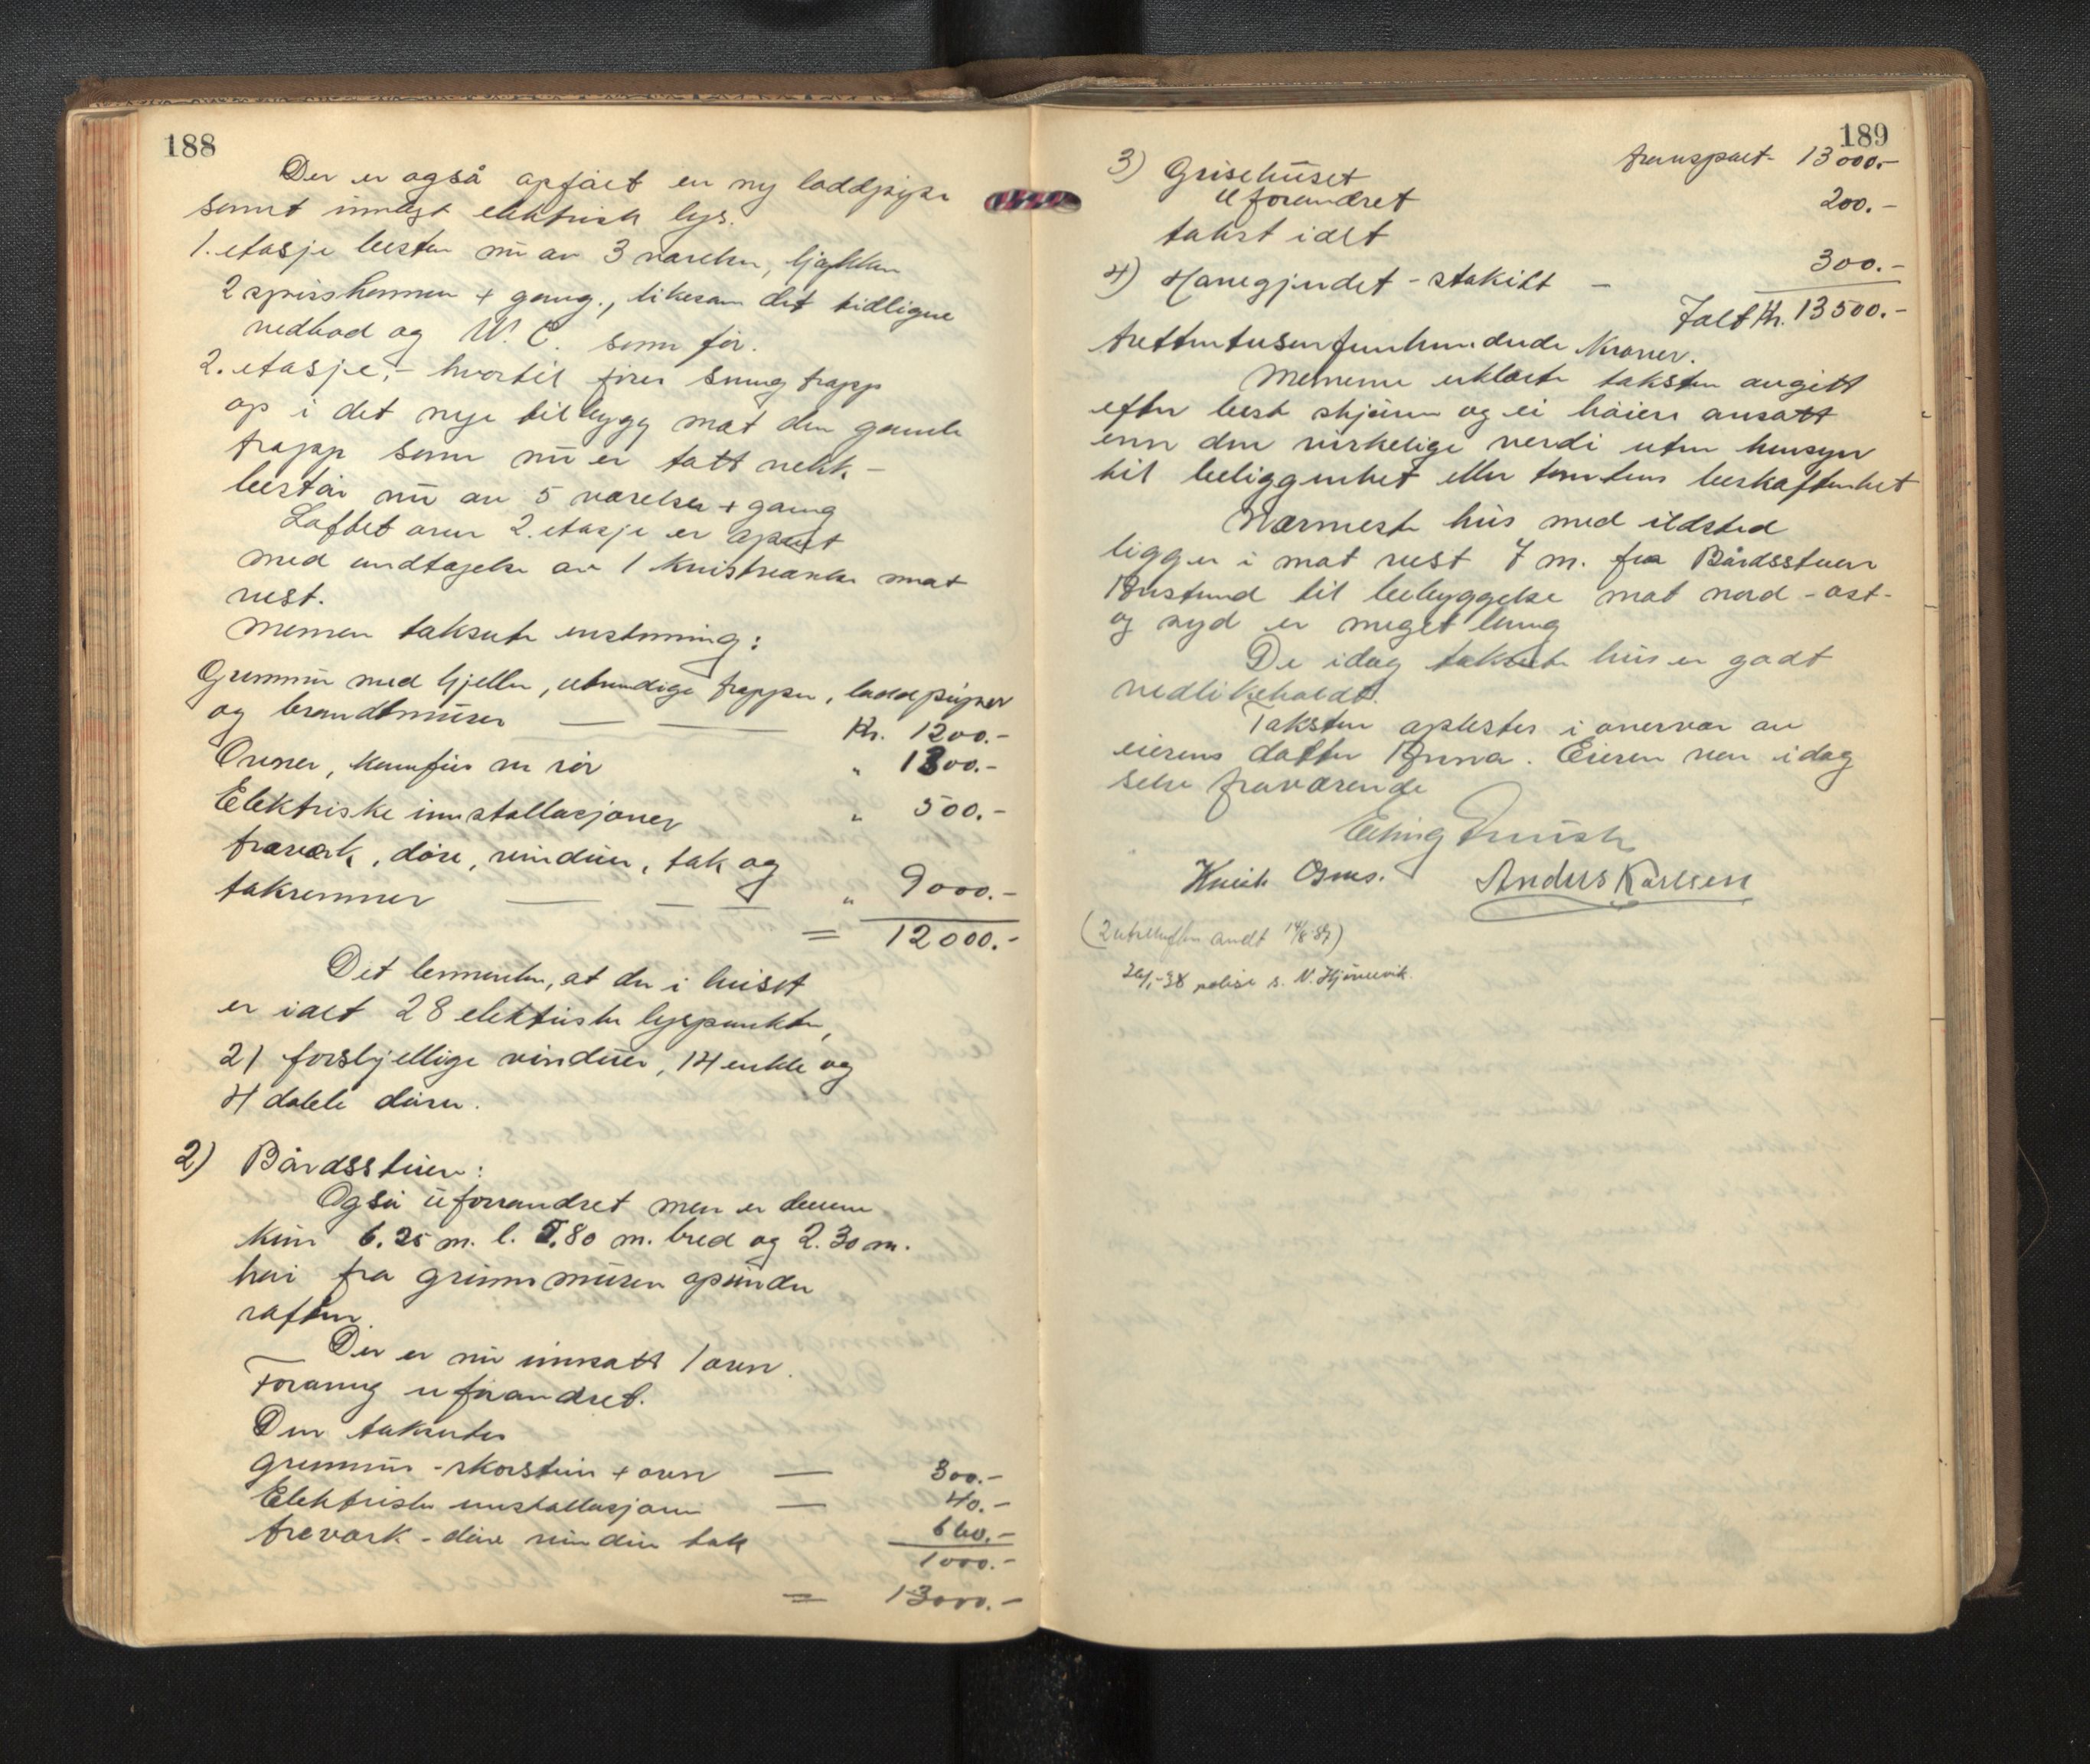 188
Der er også opført en ny loddpipe
samt innlagt elektrisk lys.
1. etasje består nu av 3 værelser, kjøkken
2 spisskammer + gang., likesom det tidligere
vedbod og W. C. som før.
2. etasje, - hvortil fører sving trapp
op i det nye tilbygg mot den gamle
trapp som nu er tatt vekk -
består nu av 5 værelser + gang
Loftet over 2. etasje er åpent
med undtagelse av 1 kvistværelse mot
vest.
Mennen takserte enstemmig:
Grunmur med kjeller, utvendige trapper, loddpiper
og brandtmurer — — Kr. 1200.-
Ovner, komfür m rør " 1300.-
Elektriske innstallasjoner " 500.-
træverk, døre, vinduer, tak og
takrenner — — — " 9000.-
= 12000.-
Det bemerkes, at der i huset
er ialt 28 elektriske lyspunkter,
21 forskjellige vinduer, 14 enkle og
4 doble dører.
2) Bårdsstuen:
Også uforrandret men er denne
kun 6.25 m. l. 5.80 m. bred og 2.30 m.
høi fra grunnmuren opunder
raften.
Der er nu innsatt 1 ovn.
Forøvrig uforandret.
Den takseres
Grunmur - skorstein + ovn — 300.-
Elektriske innstallasjon — 40.-
trevark - døre vinduer tak 660.-
1000.-
= 13000.-
189
transport- 13000.-
3) Grisehuset
Uforandret
takst ialt 200.-
4) Hanegjerdet - stakitt - 300.-
Ialt Kr. 13500.-
trettentusenfemhundrede Kroner.
Mennene erklærte taksten avgitt
efter best skjønn og ei høiere ansatt
enn den virkelige verdi uten hensyn
til beliggenhet eller tomtens beskaffenhet
Nærmeste hus med ildsted
ligger i mot vest 7 m. fra Bårdsstuen
Avstand til bebyggelse mot nord - ost-
og syd er meget lang
De idag takserte hus er godt
vedlikeholdt.
Taksten oplestes i overvær av
eierens datter Anna. Eieren var idag
selv fraværende
Anders Karlsen
(2 utskrifter sendt 14/8 37)
20/1-38 polise s. N. Hjønnevik.